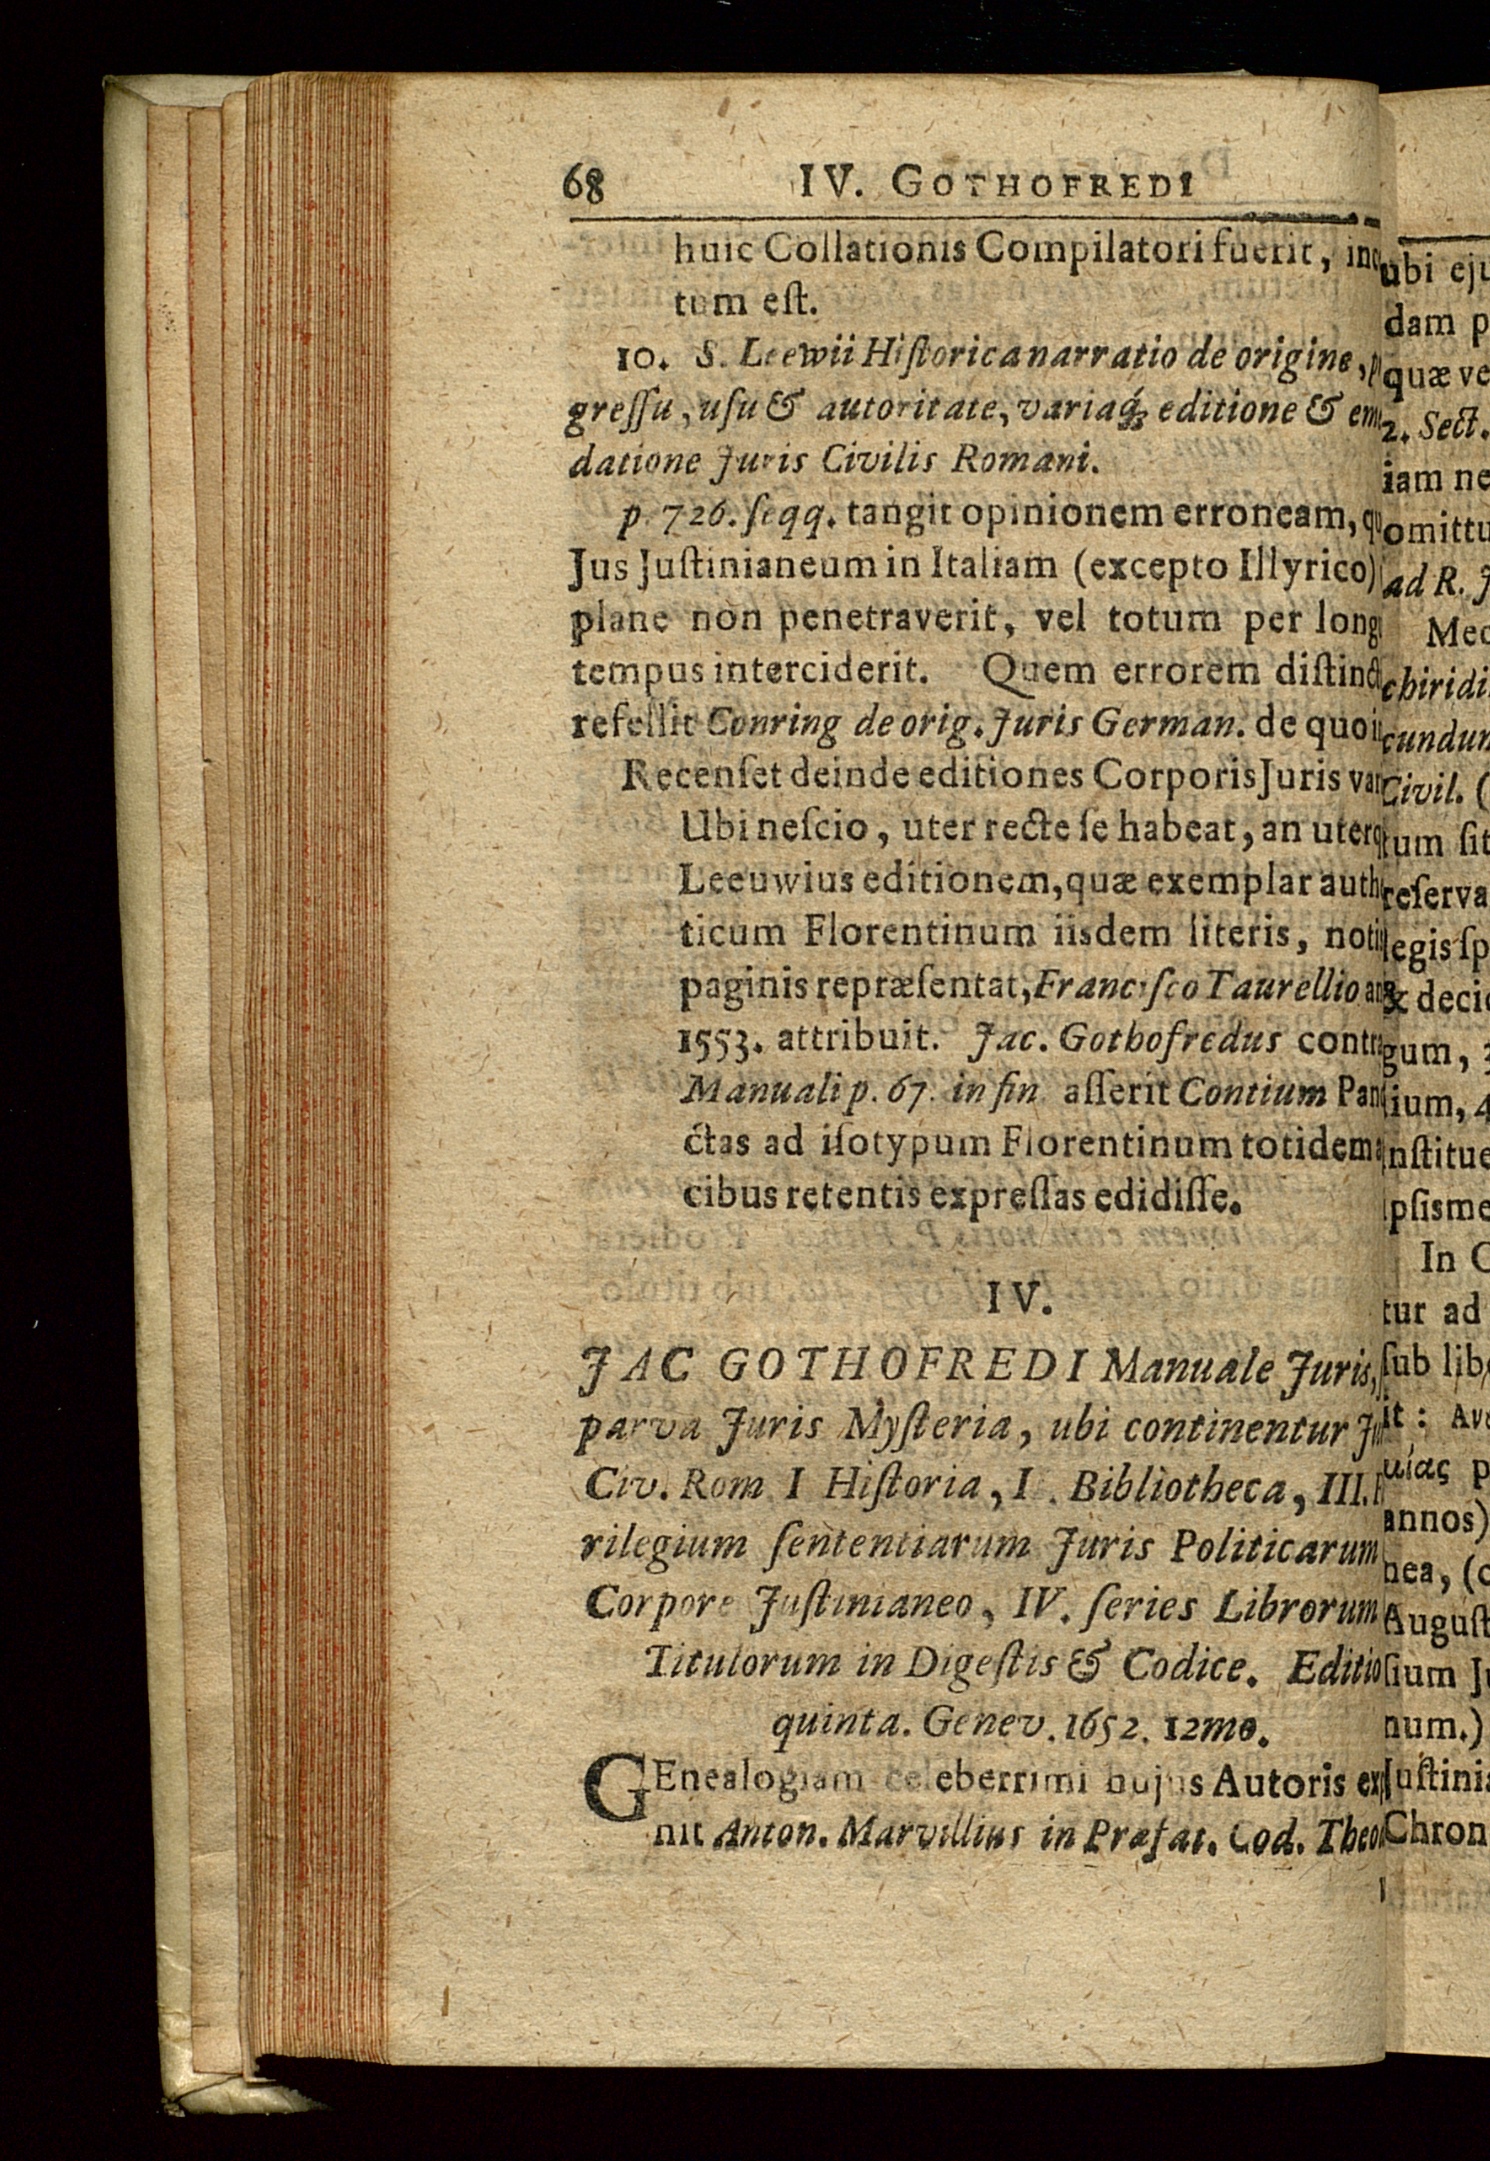 68 IV. GOTHOFREDI
huic Collationis Compilatori fuerit, inc
tum eſt.
10. S. Leewii Hiſtorica narratio de origine, p
greſſu, uſu & autoritate, variaq́; editione & em
datione Juris Civilis Romani.
p. 726. ſeqq. tangit opinionem erroneam, qu
Jus Juſtinianeum in Italiam (excepto Illyrico)
plane non penetraverit, vel totum per long
tempus interciderit. Quem errorem diſtinct
refellit Conring de orig. Juris German. de quo i
Recenſet deinde editiones Corporis Juris var
Ubi neſcio, uter recte ſe habeat, an uterq
Leeuwius editionem, quæ exemplar auth
ticum Florentinum iisdem literis, noti
paginis repræſentat, Franciſco Taurellio an
1553. attribuit. Jac. Gothofredus contra
Manuali p. 67. in fin aſſerit Contium Pan
ctas ad iſotypum Florentinum totidem a
cibus retentis expreſſas edidiſſe.
IV.
JAC GOTHOFREDI Manuale Juris,
parva Juris Myſteria, ubi continentur Ju
Civ. Rom I Hiſtoria, I . Bibliotheca, III. F
rilegium ſententiarum Juris Politicarum
Corpore Juſtinianeo, IV. ſeries Librorum
Titulorum in Digeſtis & Codice. Editio
quinta. Genev. 1652. 12mo.
GEnealogiam celeberrimi hujus Autoris exp
nit Anton. Marvillius in Præfat. Cod. Theo
ubi eju
dam p
quæ ve
2. Sect.
iam ne
omittu
ad R. J
Mec
chiridi
cundum
Civil. (
tum ſit
reſerva
legis ſp
& decid
gum, 3
ium, 4
nſtitue
ipſisme
In C
tur ad
ſub lib
it: Αυ
υίας p
annos)
nea, (c
Auguſt
ſium Ju
num.)
Juſtinia
Chron